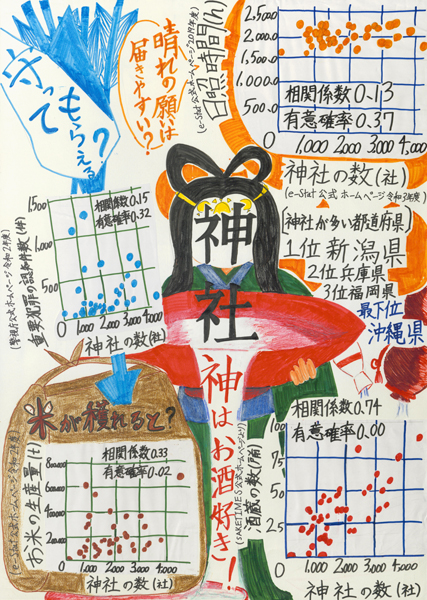 守って
もらえる?
晴れの願いは
届きやすい?
日照時間(h)
(e-Stat公式ホームページ2019年度)
2,500.0
2,000.0
1,500.0
1,000.0
500.0
0
相関係数0.13
有意確率0.37
0 1,000 2,000 3,000 4,000
神社の数(社)
(e-Stat 公式ホームページ令和3年度)
(神社が多い都道府県)
1位新潟県
2位兵庫県
3位福岡県
最下位
沖縄県
神社
神はお酒好き!
重要犯罪の認知件数(件)
(警視庁公式ホームページ令和2年度)
1,500
1,000
500
0
相関係数0.15
有意確率0.32
0 1,000 2,000 3,000 4,000
神社の数(社)
米が穫れると?
お米の生産量(t)
800,000
600,000
400,000
200,000
0
相関係数0.33
有意確率0.02
0 1,000 2,000 3,000 4,000
神社の数(社)
酒蔵の数(戸)
(SAKETIMES公式ホームページより)
相関係数0.74
有意確率0.00
100
75
50
25
0 1,000 2,000 3,000 4,000
神社の数(社)